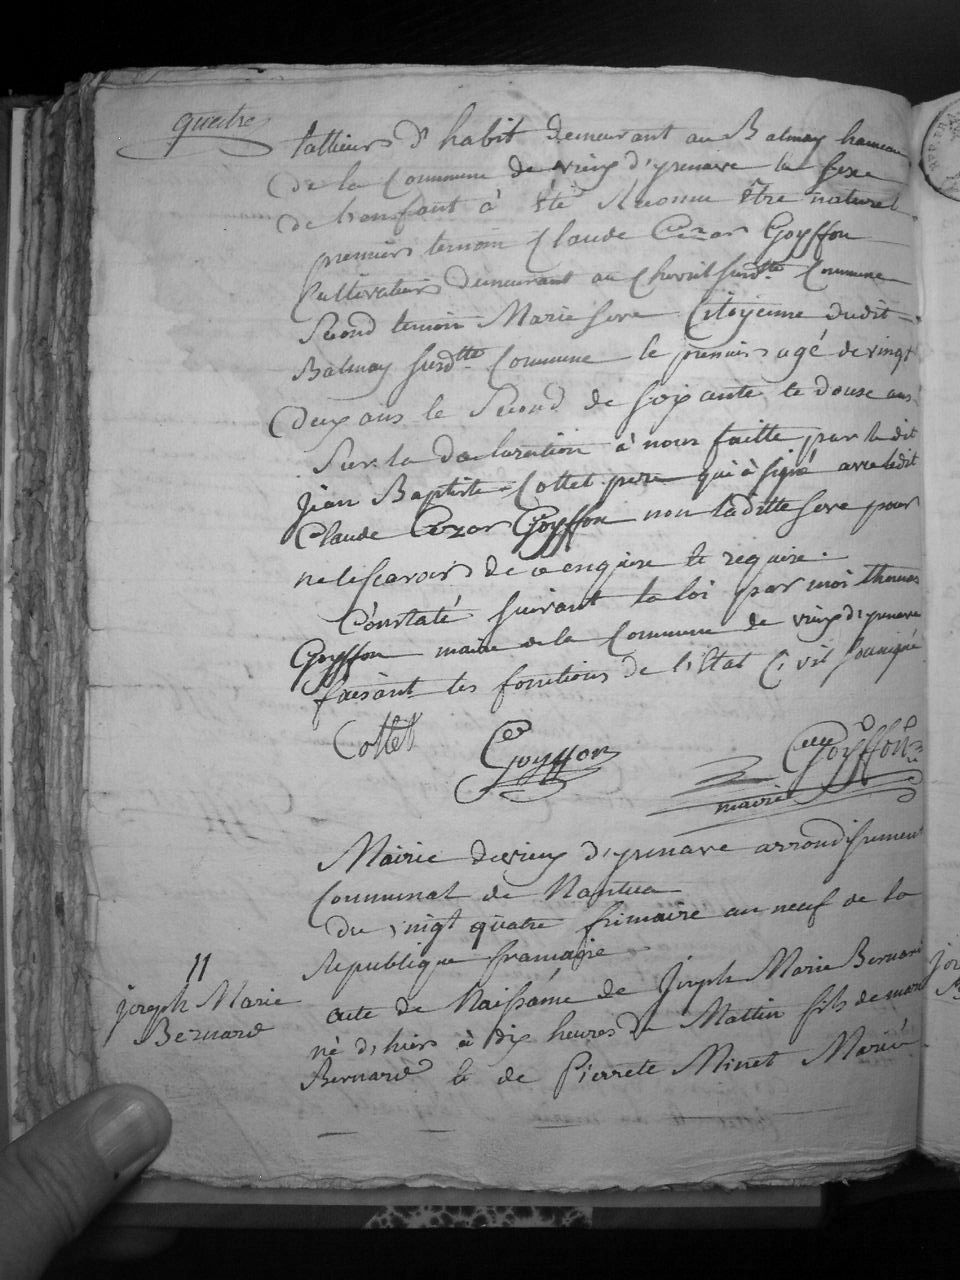 quatre
tallieur d'habit demeurant au Balmay hameau
de la Commune de vieu d'yzenave le sexe
de l'enfant à été Reconnu être naturel
premier temoin Claude Cezar Goyffon
Cultivateur demeurant au Chevril susdtte Commune
Second temoin Marie serve Citoyenne dudit
Balmay susdtte Commune le premier agé de vingt
Deux ans le Second de soixante te douse ans
Sur la declaration à nous faitte par le dit
jean Baptiste Cottet pere qui à signé avec ledit
Claude Cezar Goyffon non laditte serve pour
ne le scavoir de ce enquise te requise.
Constaté suivant la loi par moi thomas
Goyffon maire de la Commune de vieux d'yzenave
faisant les fonctions de l'Etat Civil soussigné
Cottet Goyffon Goyffon
maire
Mairie de vieux d'yzenave arrondissement
Communal de Nantua
Du vingt quatre frimaire an neuf de la
Republique francaise
11
joseph Marie
Bernard
acte de Naissance de Joseph Marie Bernard
né d'hiers à dix heures du Mattin fils de
Bernard te de Pierrete Minet Marié